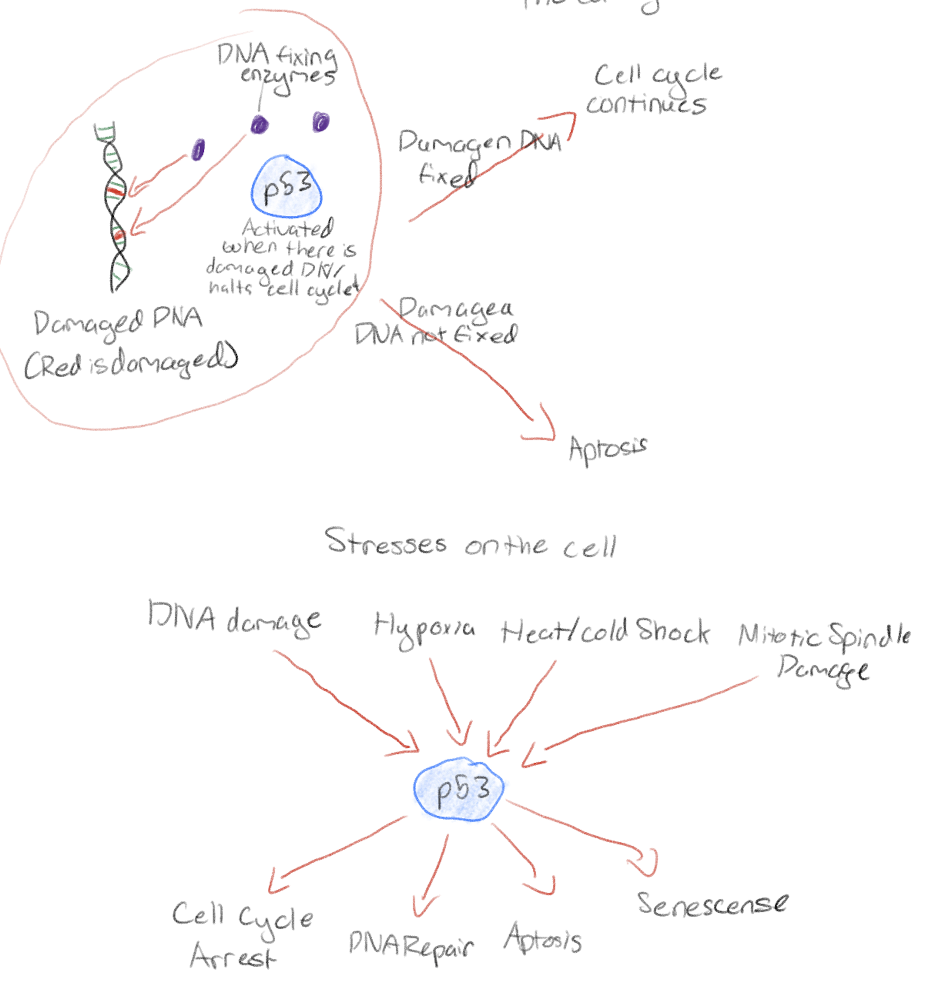 DNA fixing
enzymes
p53
Activated
when there is
damaged DN
halts cell cycle
Damaged DNA
(Red is damaged)
Cell cycle
continues
Damagen DNA
fixed
Damaged
DNA not fixed
Aptosis
Stresses on the cell
DNA damage
Hypoxia
Heat/cold Shock
Mitotic Spindle
Damage
p53
Cell Cycle
Arrest
DNA Repair
Aptosis
Senescense